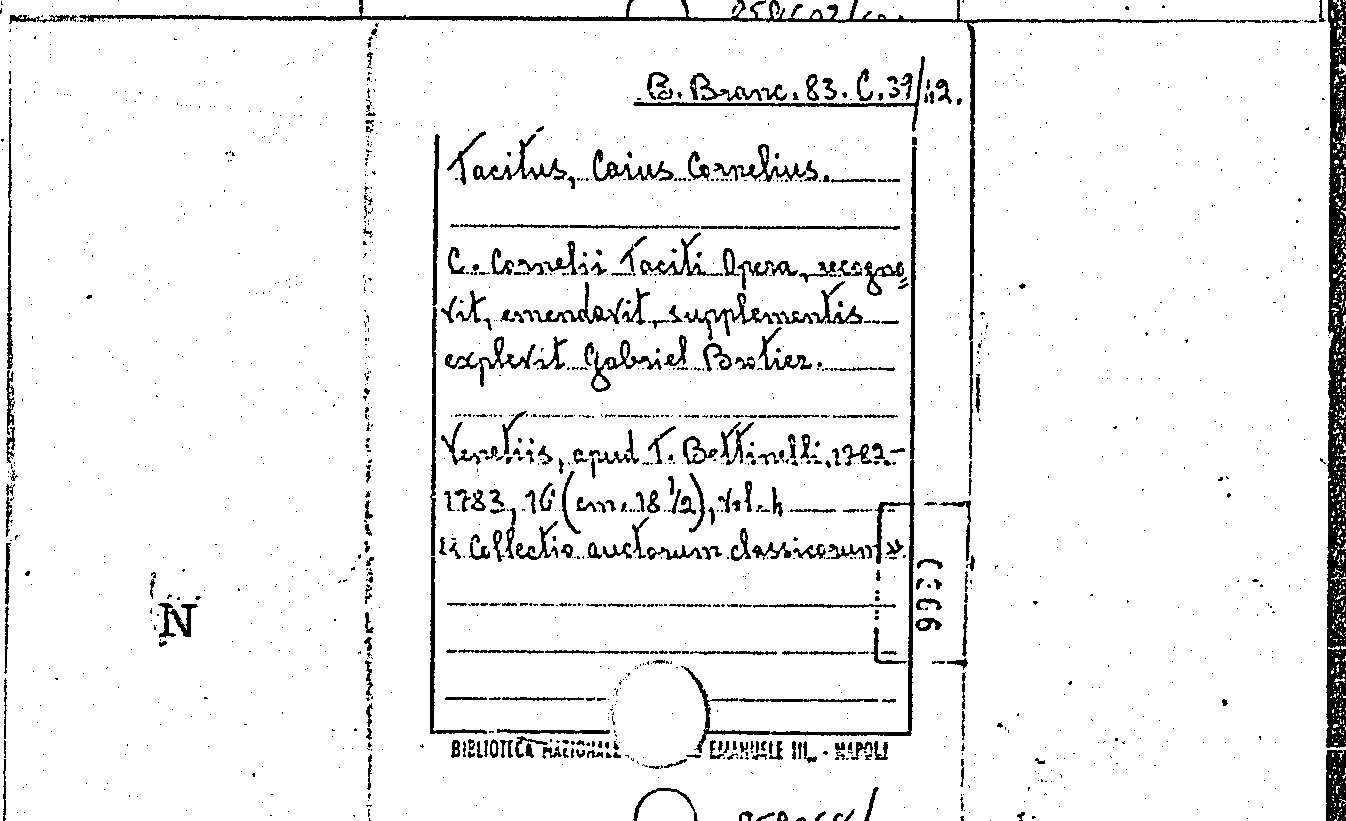 B. Branc. 83. C. 39/42.
Tacitus, Caius Cornelius.
C. Cornelii Taciti Opera, recogno=
vit, emendavit, supplementis
explevit Gabriel Brotier.
Venetiis, apud T. Bettinelli, 1782-
1783, 16° (cm. 18 1/2), vol. 4
« Collectio auctorum classicorum »
N
BIBLIOTECA NAZIONALE EMANUELE III. - NAPOLI